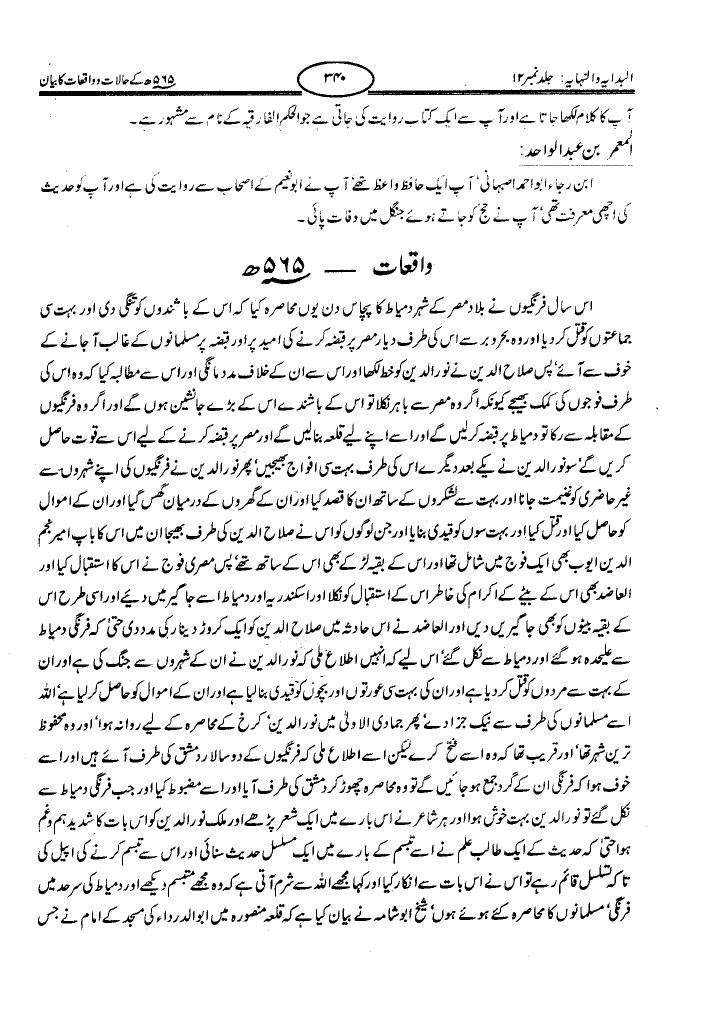 البدایہ والنہایہ: جلد نمبر ۱۲
۳۴۰
۵۶۵ھ کے حالات و واقعات کا بیان
آپ کا کلام لکھا جاتا ہے اور آپ سے ایک کتاب روایت کی جاتی ہے جو الحکم الفارقیہ کے نام سے مشہور ہے۔
المعمر بن عبدالواحد:
ابن رجاء ابو احمد اصبہانی‘ آپ ایک حافظ واعظ تھے‘ آپ نے ابونعیم کے اصحاب سے روایت کی ہے اور آپ کو حدیث
کی اچھی معرفت تھی‘ آپ نے حج کو جاتے ہوئے جنگل میں وفات پائی۔
واقعات — ۵۶۵ھ
اس سال فرنگیوں نے بلاد مصر کے شہر دمیاط کا پچاس دن یوں محاصرہ کیا کہ اس کے باشندوں کو تنگی دی اور بہت سی
جماعتوں کو قتل کر دیا اور وہ بحر و بر سے اس کی طرف دیار مصر پر قبضہ کرنے کی امید پر اور قبضہ پر مسلمانوں کے غالب آ جانے کے
خوف سے آئے‘ پس صلاح الدین نے نورالدین کو خط لکھا اور اس سے ان کے خلاف مدد مانگی اور اس سے مطالبہ کیا کہ وہ اس کی
طرف فوجوں کی کمک بھیجے کیونکہ اگر وہ مصر سے باہر نکلا تو اس کے باشندے اس کے بڑے جانشین ہوں گے اور اگر وہ فرنگیوں
کے مقابلہ سے رکا تو دمیاط پر قبضہ کر لیں گے اور اسے اپنے لیے قلعہ بنا لیں گے اور مصر پر قبضہ کرنے کے لیے اس سے قوت حاصل
کریں گے‘ سو نورالدین نے یکے بعد دیگرے اس کی طرف بہت سی افواج بھیجیں‘ پھر نورالدین نے فرنگیوں کی اپنے شہروں سے
غیر حاضری کو غنیمت جانا اور بہت سے لشکروں کے ساتھ ان کا قصد کیا اور ان کے گھروں کے درمیان گھس گیا اور ان کے اموال
کو حاصل کیا اور قتل کیا اور بہت سوں کو قیدی بنایا اور جن لوگوں کو اس نے صلاح الدین کی طرف بھیجا ان میں اس کا باپ امیر نجم
الدین ایوب بھی ایک فوج میں شامل تھا اور اس کے بقیہ لڑکے بھی اس کے ساتھ تھے‘ پس مصری فوج نے اس کا استقبال کیا اور
العاضد بھی اس کے بیٹے کے اکرام کی خاطر اس کے استقبال کو نکلا اور اسکندریہ اور دمیاط اسے جاگیر میں دیئے اور اسی طرح اس
کے بقیہ بیٹوں کو بھی جاگیریں دیں اور العاضد نے اس حادثہ میں صلاح الدین کو ایک کروڑ دینار کی مدد دی حتیٰ کہ فرنگی دمیاط
سے علیحدہ ہو گئے اور دمیاط سے نکل گئے‘ اس لیے کہ انہیں اطلاع ملی کہ نورالدین نے ان کے شہروں سے جنگ کی ہے اور ان
کے بہت سے مردوں کو قتل کر دیا ہے اور ان کی بہت سی عورتوں اور بچوں کو قیدی بنا لیا ہے اور ان کے اموال کو حاصل کر لیا ہے‘ اللہ
اسے مسلمانوں کی طرف سے نیک جزا دے‘ پھر جمادی الاولیٰ میں نورالدین‘ کرخ کے محاصرہ کے لیے روانہ ہوا‘ اور وہ محفوظ
ترین شہر تھا‘ اور قریب تھا کہ وہ اسے فتح کرے لیکن اسے اطلاع ملی کہ فرنگیوں کے دو سالار دمشق کی طرف آئے ہیں اور اسے
خوف ہوا کہ فرنگی ان کے گرد جمع ہو جائیں گے تو وہ محاصرہ چھوڑ کر دمشق کی طرف آیا اور اسے مضبوط کیا اور جب فرنگی دمیاط سے
نکل گئے تو نورالدین بہت خوش ہوا اور ہر شاعر نے اس بارے میں ایک شعر پڑھے اور ملک نورالدین کو اس بات کا شدید ہم و غم
ہوا حتیٰ کہ حدیث کے ایک طالب علم نے اسے تبسم کے بارے میں ایک مسلسل حدیث سنائی اور اس سے تبسم کرنے کی اپیل کی
تا کہ تسلسل قائم رہے تو اس نے اس بات سے انکار کیا اور کہا مجھے اللہ سے شرم آتی ہے کہ وہ مجھے متبسم دیکھے اور دمیاط کی سرحد میں
فرنگی‘ مسلمانوں کا محاصرہ کئے ہوئے ہوں‘ شیخ ابوشامہ نے بیان کیا ہے کہ قلعہ منصورہ میں ابوالدرداء کی مسجد کے امام نے جس